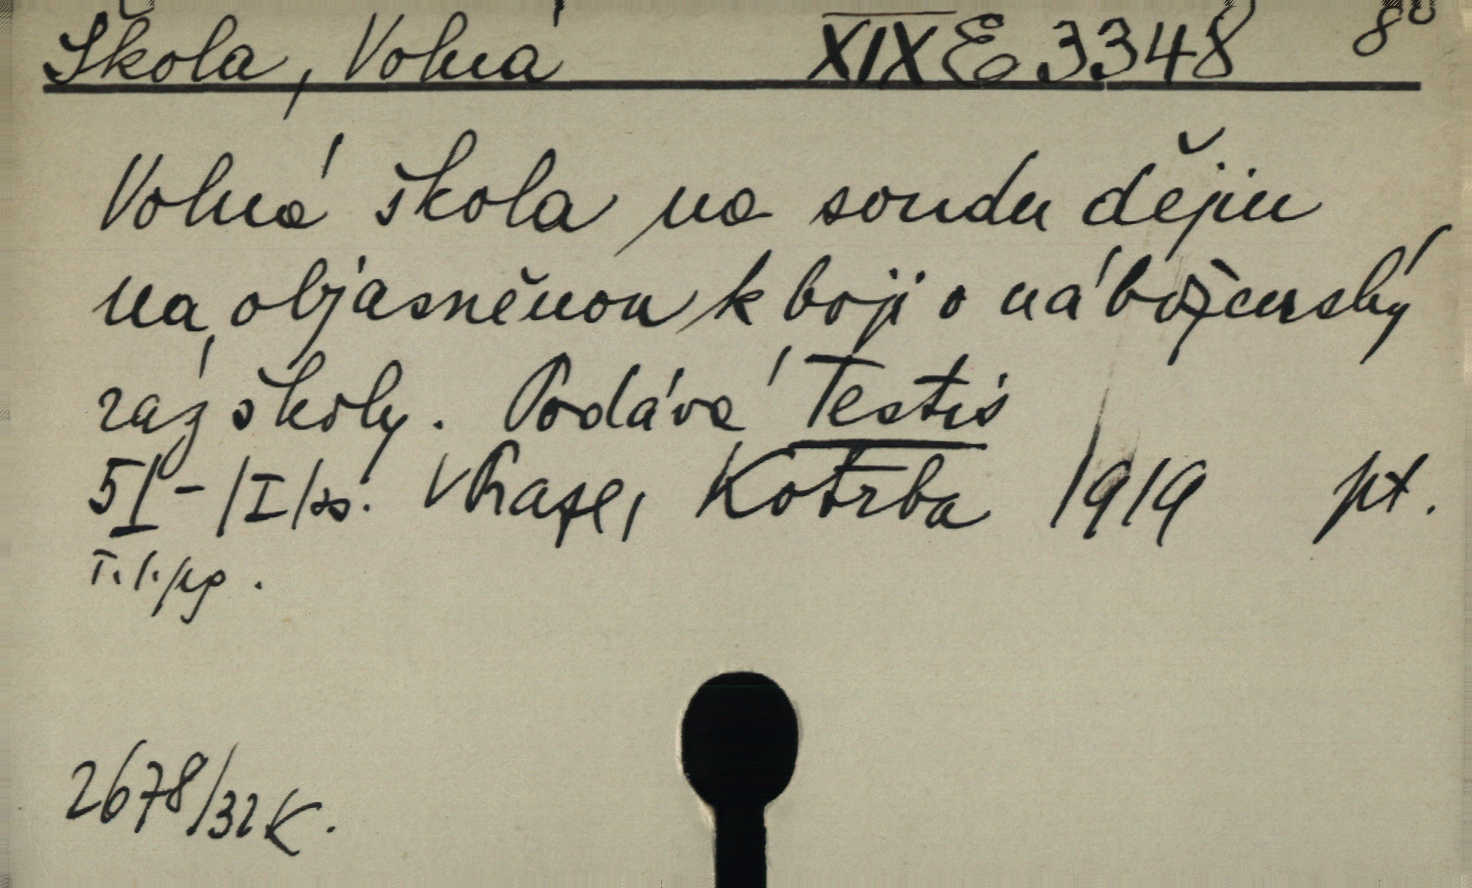 Škola, Volná XIX E 3348 8°
Volná škola na soudu dějin
na objasněnou k boji o nábožensky
ráz školy. Podává Testis
V Praze, Kotrba 1919 pt.
2678/32 K.